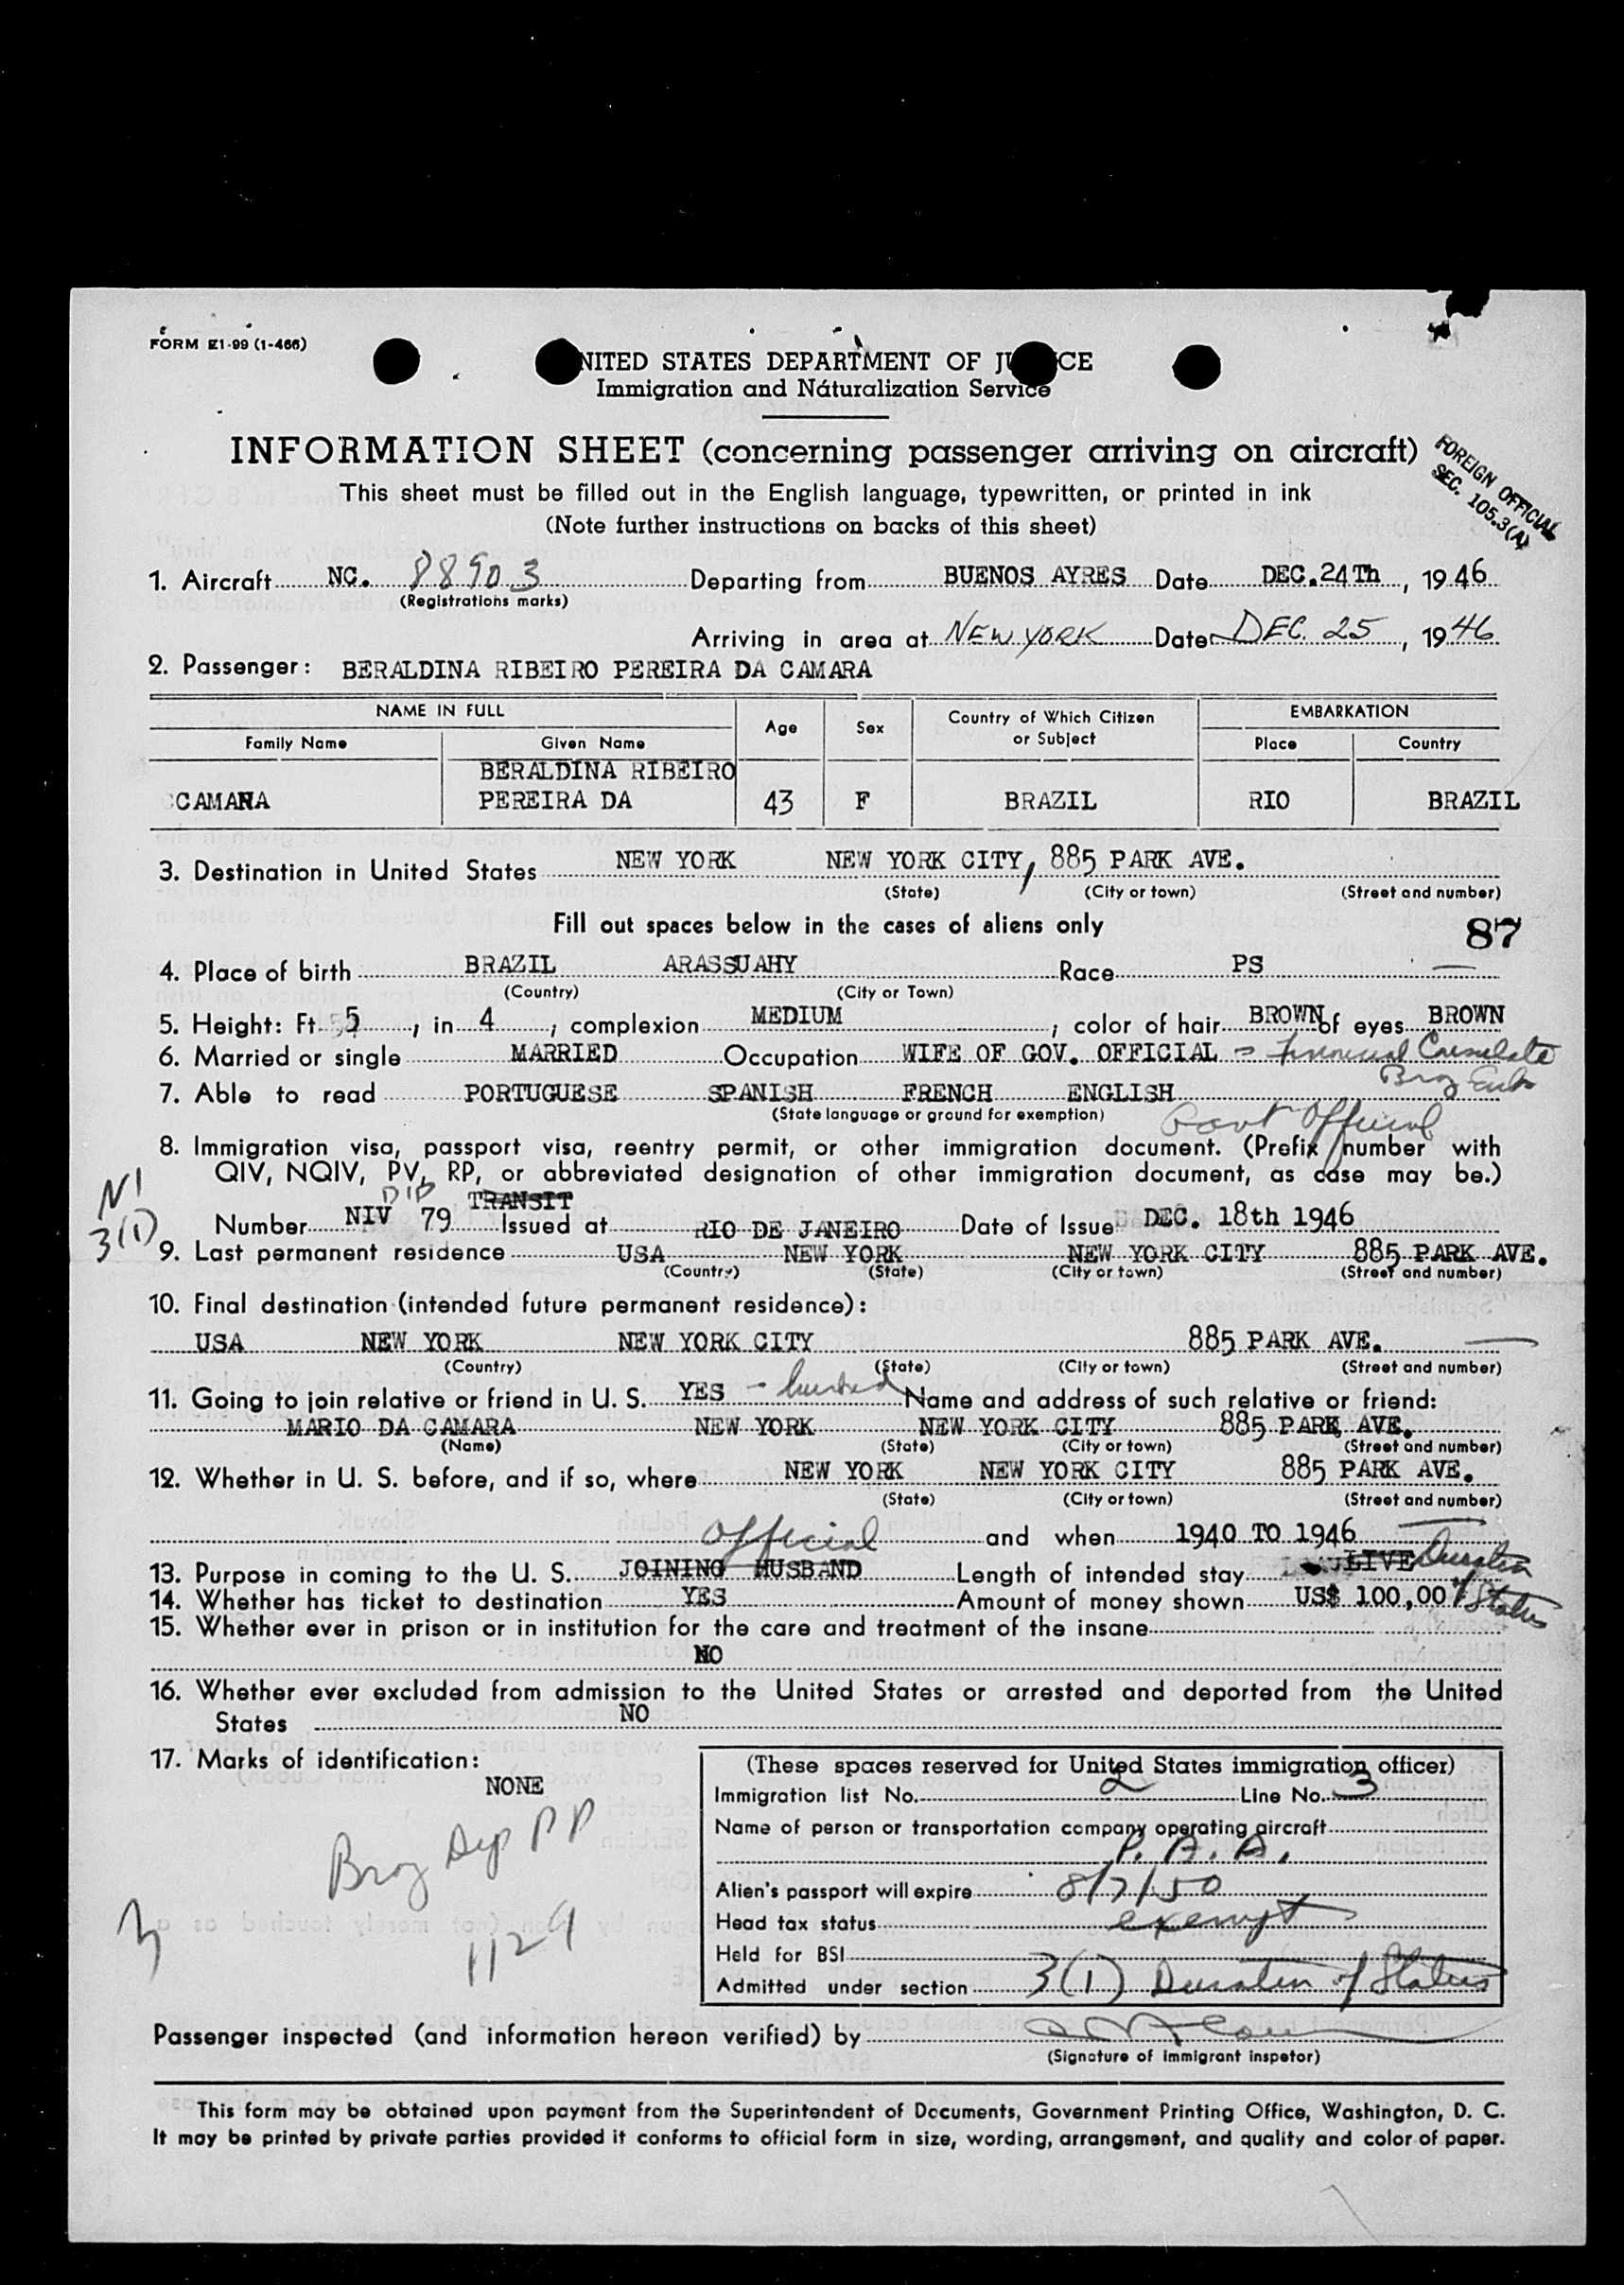 FORM I-99 (1-466)
UNITED STATES DEPARTMENT OF JUSTICE
Immigration and Naturalization Service
INFORMATION SHEET (concerning passenger arriving on aircraft)
FOREIGN OFFICIAL
SEC. 105.3(A)
This sheet must be filled out in the English language, typewritten, or printed in ink
(Note further instructions on backs of this sheet)
1. Aircraft NC. 88903 Departing from BUENOS AYRES Date DEC.24Th, 1946
(Registrations marks)
Arriving in area at NEW YORK Date DEC. 25, 1946
2. Passenger: BERALDINA RIBEIRO PEREIRA DA CAMARA
NAME IN FULL Age Sex Country of Which Citizen or Subject EMBARKATION
Family Name Given Name Place Country
BERALDINA RIBEIRO
CAMARA PEREIRA DA 43 F BRAZIL RIO BRAZIL
3. Destination in United States NEW YORK NEW YORK CITY, 885 PARK AVE.
(State) (City or town) (Street and number)
Fill out spaces below in the cases of aliens only 87
4. Place of birth BRAZIL ARASSUAHY Race PS
(Country) (City or Town)
5. Height: Ft. 5, in 4, complexion MEDIUM, color of hair BROWN of eyes BROWN
6. Married or single MARRIED Occupation WIFE OF GOV. OFFICIAL - Financial Consulate
7. Able to read PORTUGUESE SPANISH FRENCH ENGLISH
(State language or ground for exemption) Govt Official
8. Immigration visa, passport visa, reentry permit, or other immigration document. (Prefix number with
QIV, NQIV, PV, RP, or abbreviated designation of other immigration document, as case may be.)
DIP TRANSIT
N1
3(1)
Number NIV 79 Issued at RIO DE JANEIRO Date of Issue DEC. 18th 1946
9. Last permanent residence USA NEW YORK NEW YORK CITY 885 PARK AVE.
(Country) (State) (City or town) (Street and number)
10. Final destination (intended future permanent residence):
USA NEW YORK NEW YORK CITY 885 PARK AVE.
(Country) (State) (City or town) (Street and number)
11. Going to join relative or friend in U. S. YES - husband Name and address of such relative or friend:
MARIO DA CAMARA NEW YORK NEW YORK CITY 885 PARK AVE.
(Name) (State) (City or town) (Street and number)
12. Whether in U. S. before, and if so, where NEW YORK NEW YORK CITY 885 PARK AVE.
(State) (City or town) (Street and number)
Official and when 1940 TO 1946
13. Purpose in coming to the U. S. JOINING HUSBAND Length of intended stay LIVE Duration
14. Whether has ticket to destination YES Amount of money shown US$ 100,00 of Status
15. Whether ever in prison or in institution for the care and treatment of the insane
NO
16. Whether ever excluded from admission to the United States or arrested and deported from the United
States NO
17. Marks of identification:
NONE
Braz Dip PP
1129
3
(These spaces reserved for United States immigration officer)
Immigration list No. 2 Line No. 3
Name of person or transportation company operating aircraft
P. A. A.
Alien's passport will expire 8/7/50
Head tax status exempt
Held for BSI
Admitted under section 3(1) Duration of Status
Passenger inspected (and information hereon verified) by
(Signature of Immigrant inspetor)
This form may be obtained upon payment from the Superintendent of Documents, Government Printing Office, Washington, D. C.
It may be printed by private parties provided it conforms to official form in size, wording, arrangement, and quality and color of paper.